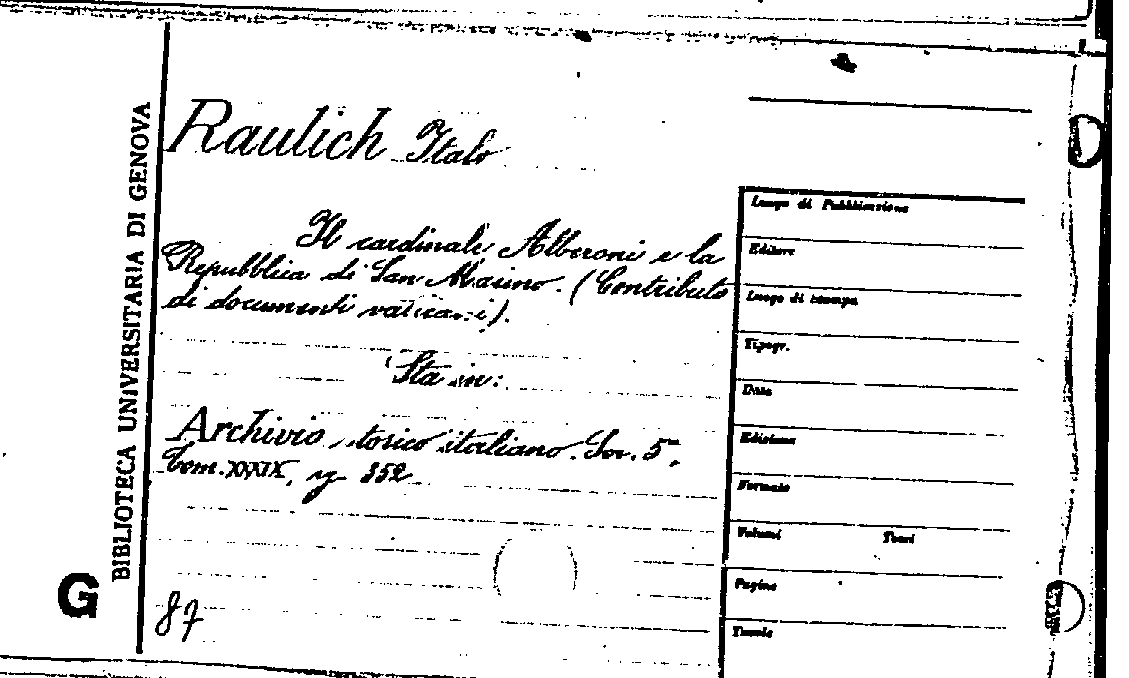 Raulich Italo
Il cardinale Alberoni e la
Repubblica di San Marino. (Contributo
di documenti vaticani).
Sta in:
Archivio storico italiano. Ser. 5ª,
Tom. XXXIX, pg 352
87
BIBLIOTECA UNIVERSITARIA DI GENOVA
G
Luogo di Pubblicazione
Editore
Luogo di stampa
Tipogr.
Data
Edizione
Formato
Volumi Tomi
Pagine
Tavole